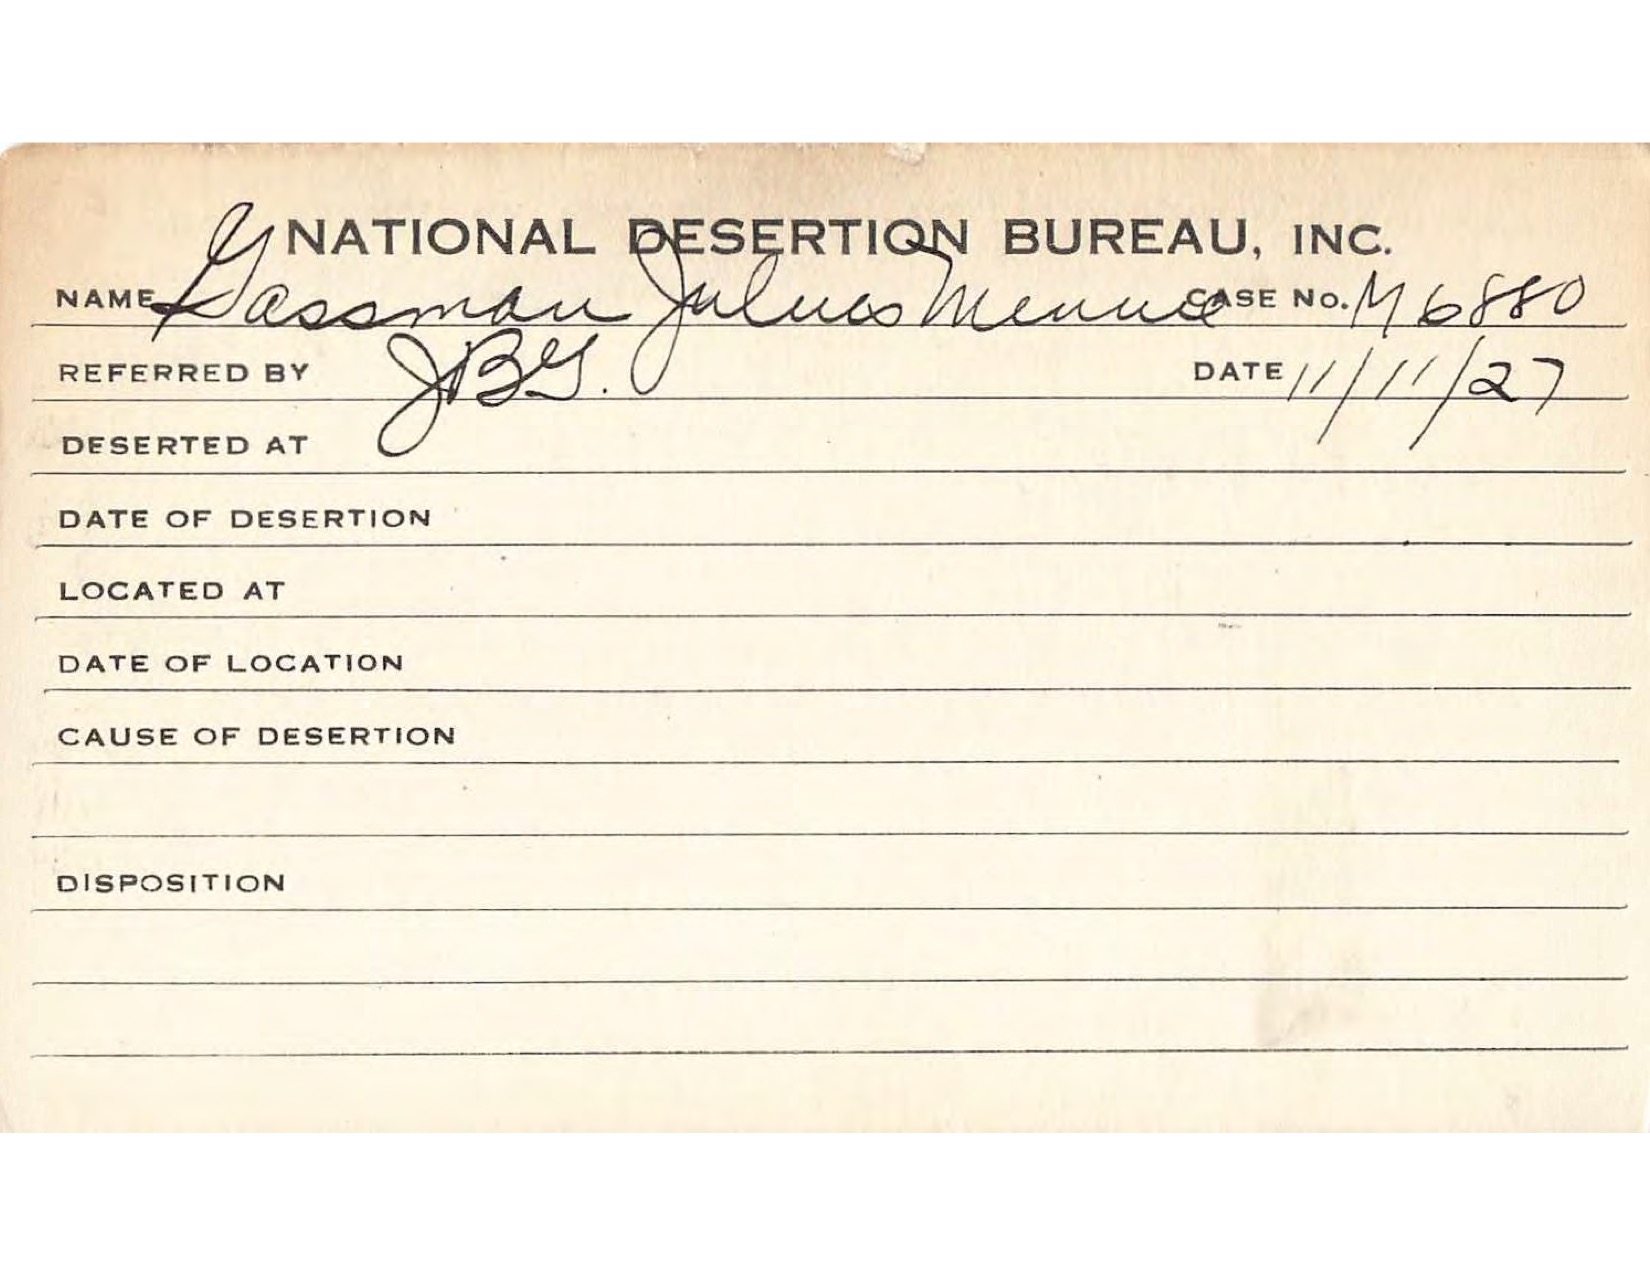 NATIONAL DESERTION BUREAU, INC.
NAME Gassman Julius Minnie CASE NO. M6880
REFERRED BY JBG. DATE 11/11/27
DESERTED AT
DATE OF DESERTION
LOCATED AT
DATE OF LOCATION
CAUSE OF DESERTION
DISPOSITION